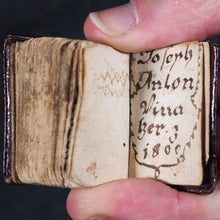 Joseph
Anlon
Vina
her. z
1800